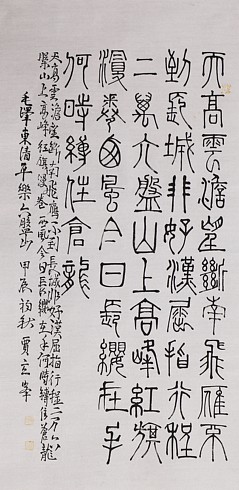 天高雲澹望斷南飛雁不
到長城非好漢屈指行程
二萬六盤山上高峰紅旗
漫卷西風今日長纓在手
何時縛住倉龍
天高雲澹望斷南飛雁不到長城非好漢屈指行程二萬六
盤山上高峰紅旗漫卷西風今日長纓在手何時縛住蒼龍
毛澤東清平樂六盤山 甲辰初秋 賈